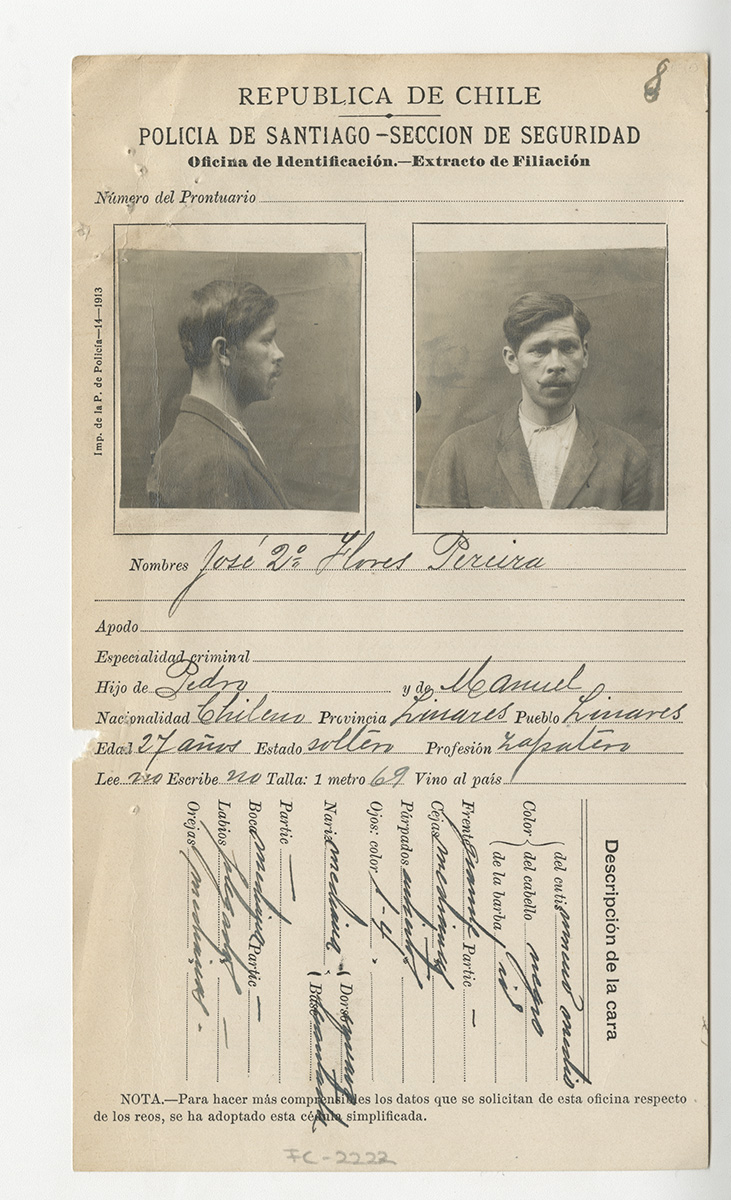 8
REPUBLICA DE CHILE
POLICIA DE SANTIAGO-SECCION DE SEGURIDAD
Oficina de Identificación.—Extracto de Filiación
Número del Prontuario
Imp. de la P. de Policía—14—1913
Nombres José 2º Flores Pereira
Apodo
Especialidad criminal
Hijo de Pedro y de Manuel
Nacionalidad Chileno Provincia Linares Pueblo Linares
Edad 27 años Estado soltero Profesión zapatero
Lee no Escribe no Talla: 1 metro 69 Vino al país
Descripción de la cara
Color del cutis
del cabello negro
de la barba id
Frente Partic —
Cejas medianas
Párpados
Ojos: color 1-4
Nariz mediana Dorso
Base
Partic —
Boca mediana Partic —
Labios
Orejas medianas
NOTA.—Para hacer más comprensibles los datos que se solicitan de esta oficina respecto
de los reos, se ha adoptado esta cédula simplificada.
FC-2222